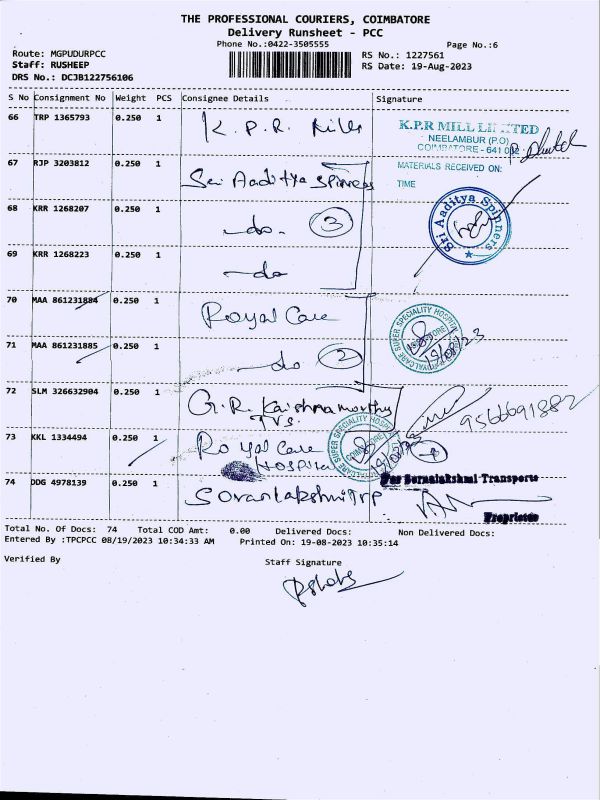 THE PROFESSIONAL COURIERS, COIMBATORE
Delivery Runsheet - PCC
Phone No.:0422-3505555
Page No.:6
Route: MGPUDURPCC
Staff: RUSHEEP
DRS No.: DCJB122756106
RS No.: 1227561
RS Date: 19-Aug-2023
S No Consignment No Weight PCS Consignee Details Signature
66 TRP 1365793 0.250 1 K. P. R. Mills
K.P.R MILL LIMITED
NEELAMBUR (P.O)
COIMBATORE - 641 062
MATERIALS RECEIVED ON:
TIME
67 RJP 3203812 0.250 1 Sri Aaditya Spinners
Sri Aaditya Spinners
68 KRR 1268207 0.250 1 -do- 3
69 KRR 1268223 0.250 1 -do
70 MAA 861231884 0.250 1 Royal Care
ROYALCARE SUPER SPECIALITY HOSPITAL
19/08/23
71 MAA 861231885 0.250 1 -do 2
72 SLM 326632904 0.250 1 G.R. Krishnamorthy
TVS.
9566691882
73 KKL 1334494 0.250 1 Royal Care
Hospital
ROYALCARE SUPER SPECIALITY HOSPITAL
COIMBATORE
74 DDG 4978139 0.250 1 SovranlakshmiTrp
For Sornalakshmi Transports
Proprietor
Total No. Of Docs: 74 Total COD Amt: 0.00 Delivered Docs: Non Delivered Docs:
Entered By :TPCPCC 08/19/2023 10:34:33 AM Printed On: 19-08-2023 10:35:14
Verified By
Staff Signature